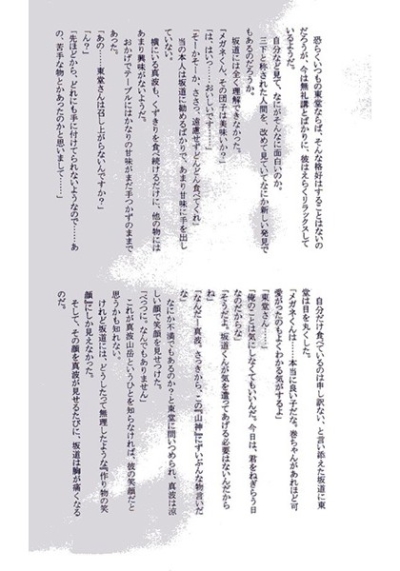 恐らくいつもの東堂ならば、そんな格好はすることはないの
だろうが、今は無礼講とばかりに、彼はえらくリラックスして
いるようだ。
自分など見て、なにがそんなに面白いのか。
三下と称された人間を、改めて見ていてなにか新しい発見で
もあるのだろうか。
坂道には全く理解できなかった。
「メガネくん、その団子は美味いか？」
「は、はいっ……おいしいです……！」
「そーかそーか、ささっ、遠慮せずどんどん食べてくれ」
当の本人は坂道に勧めるばかりで、あまり甘味に手を出し
ていない。
横にいる真波も、くずきりを食べ続けるだけに、他の物には
あまり興味がないようだ。
おかげでテーブルにはかなりの甘味がまだ手つかずのままで
あった。
「あの……東堂さんは召し上がらないんですか？」
「ん？」
「先ほどから、どれにも手に付けてられないようなので……あ
の、苦手な物とかあったのかと思いまして……」
自分だけ食べているのは申し訳ない、と言い添えた坂道に東
堂は目を丸くした。
「メガネくんは……本当に良い子だな。巻ちゃんがあれほど可
愛がったのもよくわかる気がするよ」
「東堂さん……」
「俺のことは気にしなくてもいいんだ。今日は、君をねぎらう日
なのだからな」
「そうだよ。坂道くんが気を遣ってあげる必要はないんだから
ね」
「なんだー真波、さっきから、この『山神』にずいぶんな物言いだ
な」
なにか不満でもあるのか？と東堂に問いつめられ、真波は涼
しい顔で笑顔を見せつけた。
「べっつに。なんでもありません」
これが真波山岳というひとを知らなければ、彼の笑顔だと
思うかも知れない。
けれど坂道には、どうしたって無理したような『作り物の笑
顔』にしか見えなかった。
そして、その顔を真波が見せるたびに、坂道は胸が痛くなる
のだ。